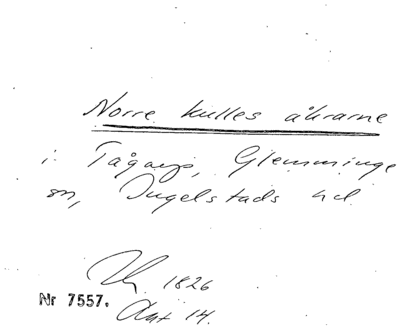 Norre kulles åkrarne
i Tågarp, Glemminge
sn, Ingelstads hd
1826
Nr 7557. Akt 14.